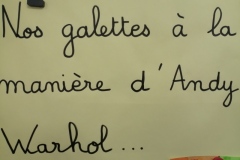 Nos galettes à la
manière d'Andy
Warhol...